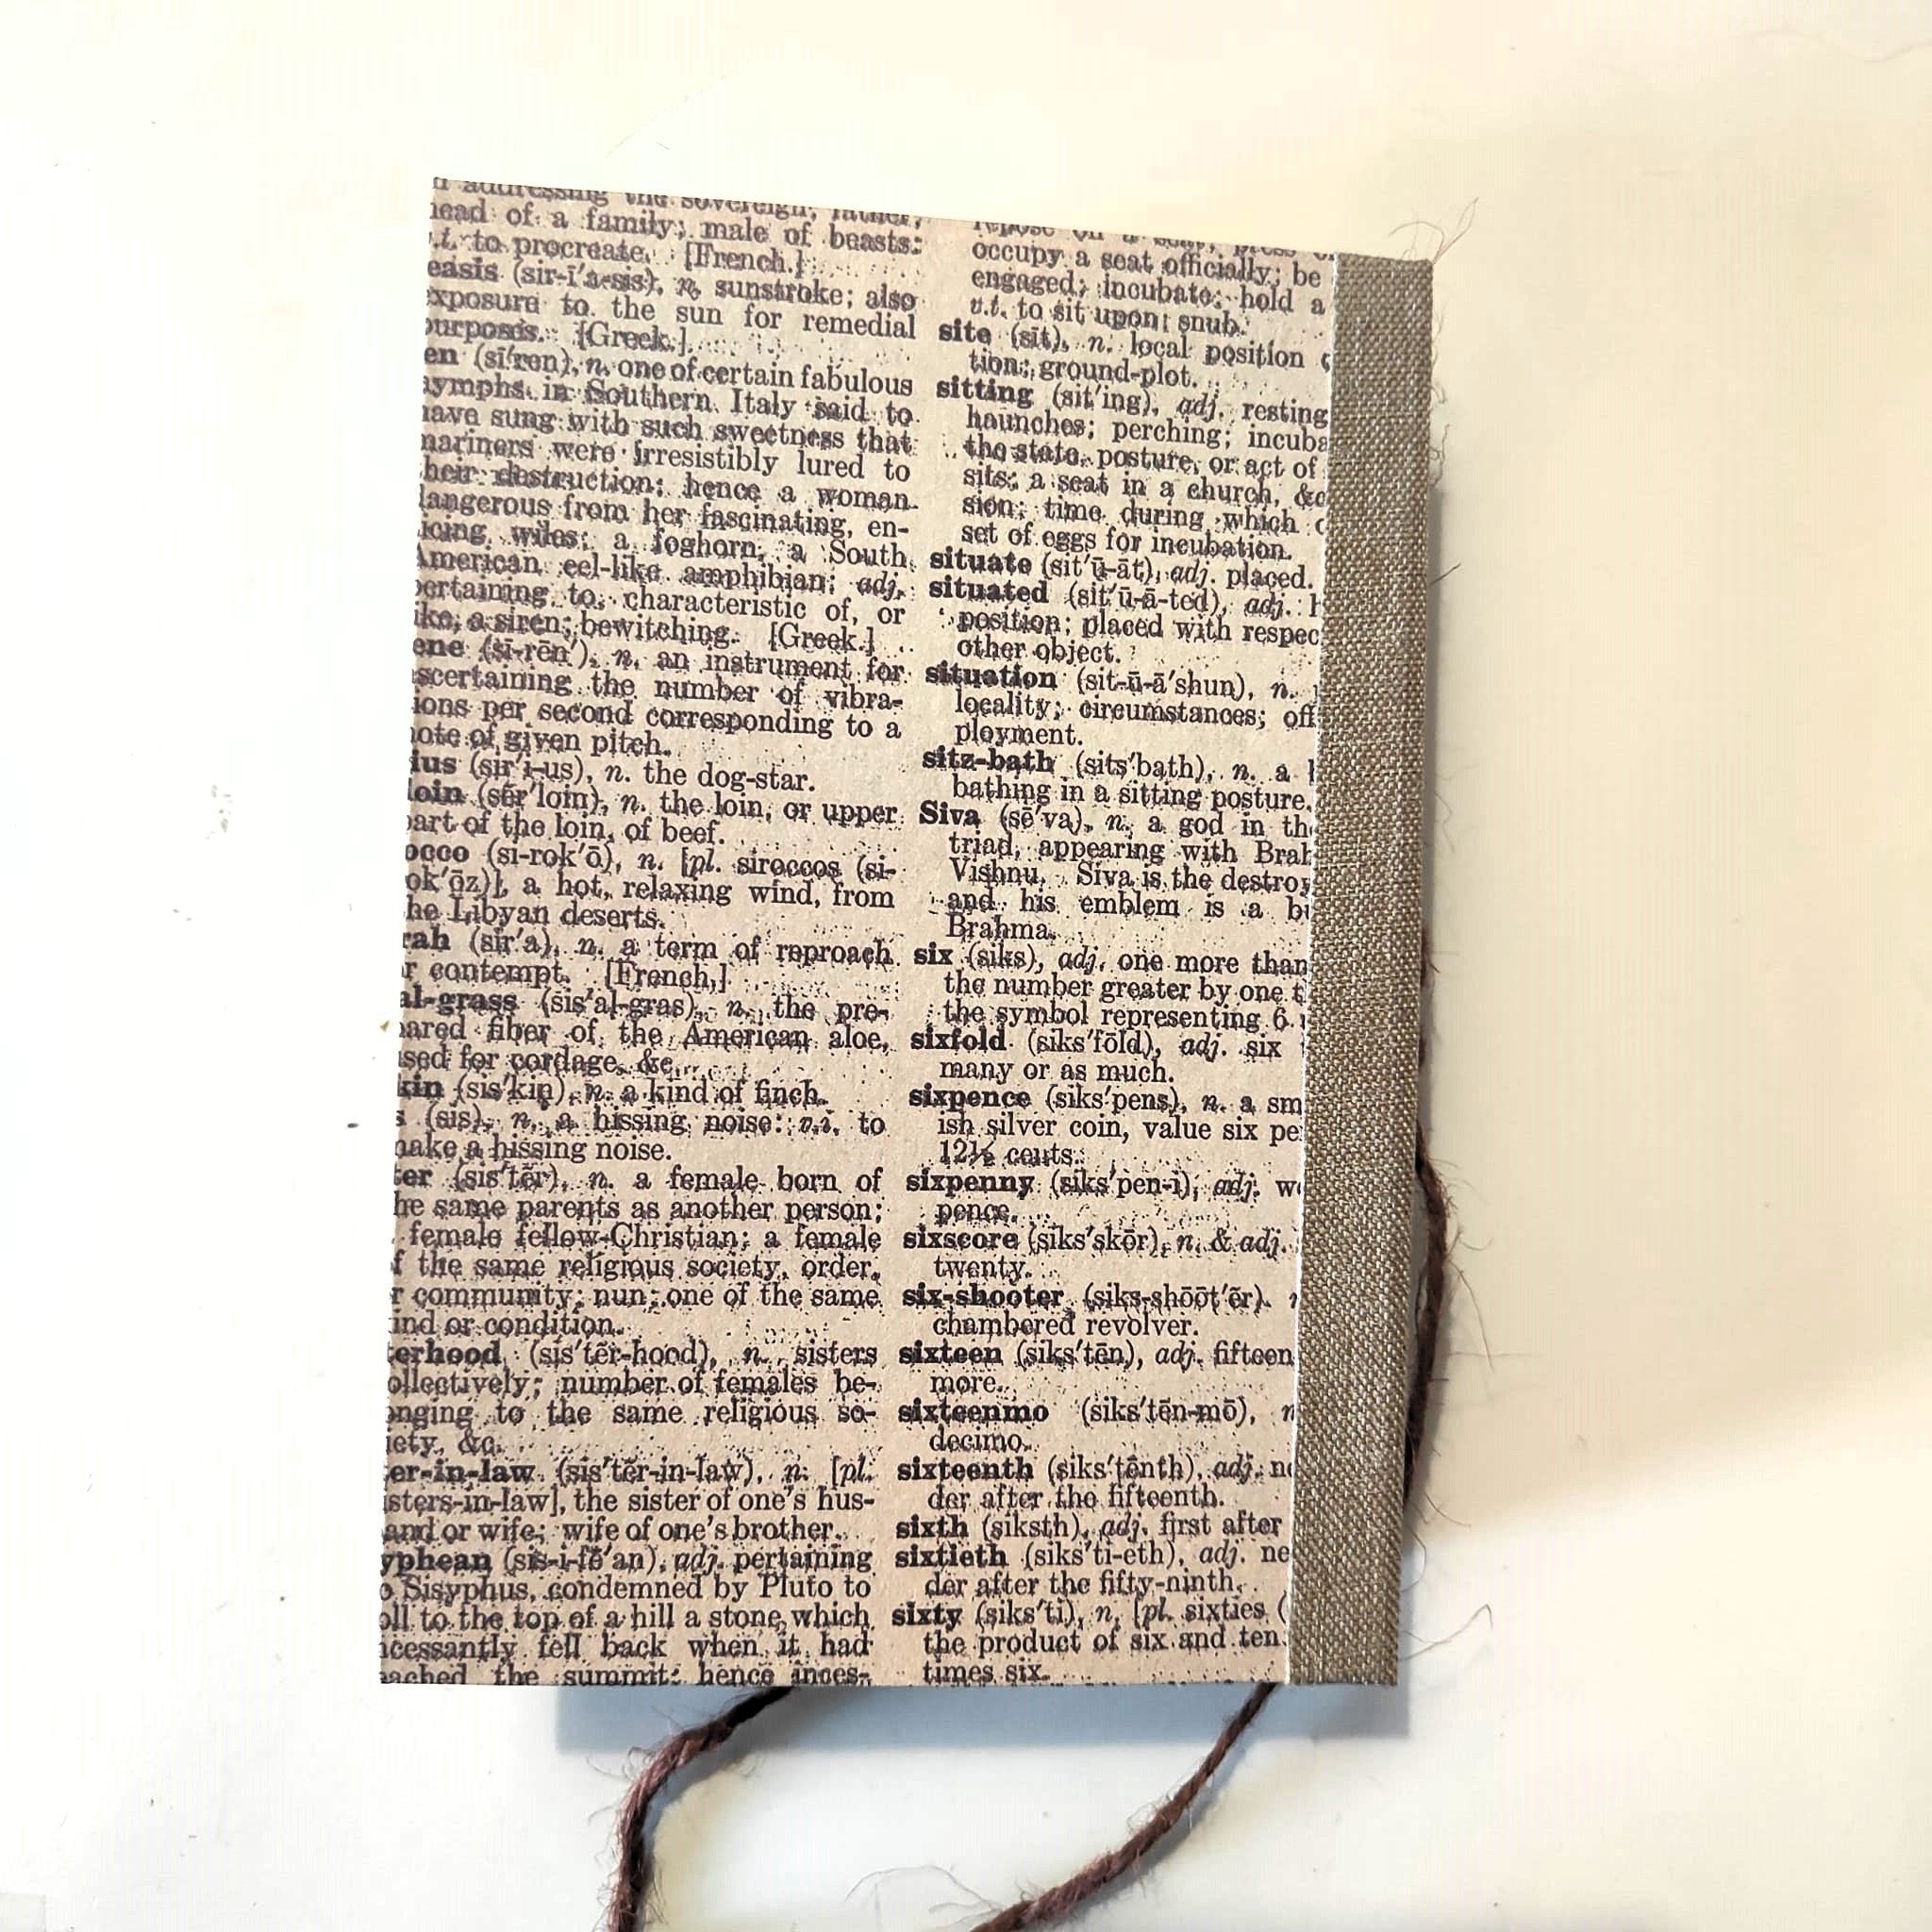 addressing the sovereign; father;
head of a family; male of beasts:
v.t. to procreate. [French.]
easis (sir-ī′a-sis), n. sunstroke; also
exposure to the sun for remedial
purposes. [Greek.]
en (sī′ren), n. one of certain fabulous
nymphs in Southern Italy said to
have sung with such sweetness that
mariners were irresistibly lured to
their destruction; hence a woman
dangerous from her fascinating, en-
icing wiles; a foghorn; a South
American eel-like amphibian; adj.
pertaining to, characteristic of, or
like, a siren; bewitching. [Greek.]
ene (si-rēn′), n. an instrument for
ascertaining the number of vibra-
ions per second corresponding to a
note of given pitch.
ius (sir′i-us), n. the dog-star.
loin (sẽr′loin), n. the loin, or upper
part of the loin, of beef.
occo (si-rok′ō), n. [pl. siroccos (si-
ok′ōz)], a hot, relaxing wind, from
he Libyan deserts.
rah (sir′a), n. a term of reproach
r contempt. [French.]
al-grass (sis′al-gras), n. the pre-
ared fiber of the American aloe,
used for cordage, &c.
kin (sis′kin), n. a kind of finch.
s (sis), n. a hissing noise: v.i. to
make a hissing noise.
ter (sis′tẽr), n. a female born of
he same parents as another person;
female fellow-Christian; a female
f the same religious society, order,
r community; nun; one of the same
ind or condition.
terhood (sis′tẽr-hood), n. sisters
ollectively; number of females be-
onging to the same religious so-
iety, &c.
er-in-law (sis′tẽr-in-law), n. [pl.
isters-in-law], the sister of one's hus-
and or wife; wife of one's brother.
yphean (sis-i-fē′an), adj. pertaining
o Sisyphus, condemned by Pluto to
oll to the top of a hill a stone which
ncessantly fell back when it had
eached the summit: hence inces-
repose on a seat; press
occupy a seat officially; be
engaged; incubate; hold a
v.t. to sit upon; snub.
site (sīt), n. local position
tion; ground-plot.
sitting (sit′ing), adj. resting
haunches; perching; incuba
the state, posture, or act of
sits; a seat in a church, &c
sion; time during which
set of eggs for incubation.
situate (sit′ū-āt), adj. placed.
situated (sit′ū-ā-ted), adj.
position; placed with respec
other object.
situation (sit-ū-ā′shun), n.
locality; circumstances; off
ployment.
sitz-bath (sits′bath), n. a
bathing in a sitting posture.
Siva (sē′va), n. a god in th
triad, appearing with Brah
Vishnu. Siva is the destroy
and his emblem is a bu
Brahma.
six (siks), adj. one more than
the number greater by one t
the symbol representing 6.
sixfold (siks′fōld), adj. six
many or as much.
sixpence (siks′pens), n. a sm
ish silver coin, value six pe
12½ cents.
sixpenny (siks′pen-i), adj. wo
pence.
sixscore (siks′skōr), n. & adj.
twenty.
six-shooter (siks-shōōt′ẽr).
chambered revolver.
sixteen (siks′tēn), adj. fifteen
more.
sixteenmo (siks′tēn-mō), n
decimo.
sixteenth (siks′tēnth), adj. ne
der after the fifteenth.
sixth (siksth), adj. first after
sixtieth (siks′ti-eth), adj. ne
der after the fifty-ninth.
sixty (siks′ti), n. [pl. sixties (
the product of six and ten
times six.